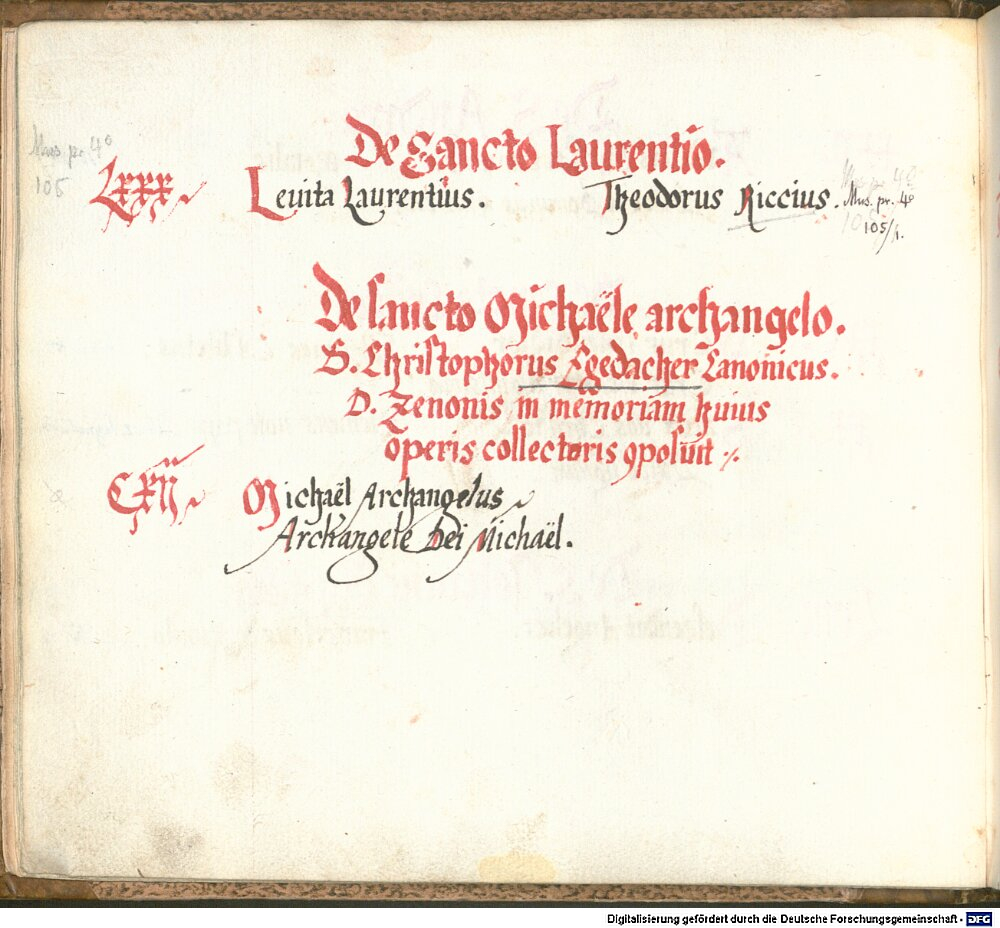 De Sancto Laurentio.
Mus. pr. 4°
105
Lxxx
Leuita Laurentius. Theodorus Riccius. Mus. pr. 4°
105/1.
De Sancto Michaële archangelo.
D. Christophorus Egedacher Canonicus.
D. Zenonis in memoriam huius
operis collectoris ꝯposuit
CXII
Michaël Archangelus
Archangele Dei Michaël.
Digitalisierung gefördert durch die Deutsche Forschungsgemeinschaft - DFG